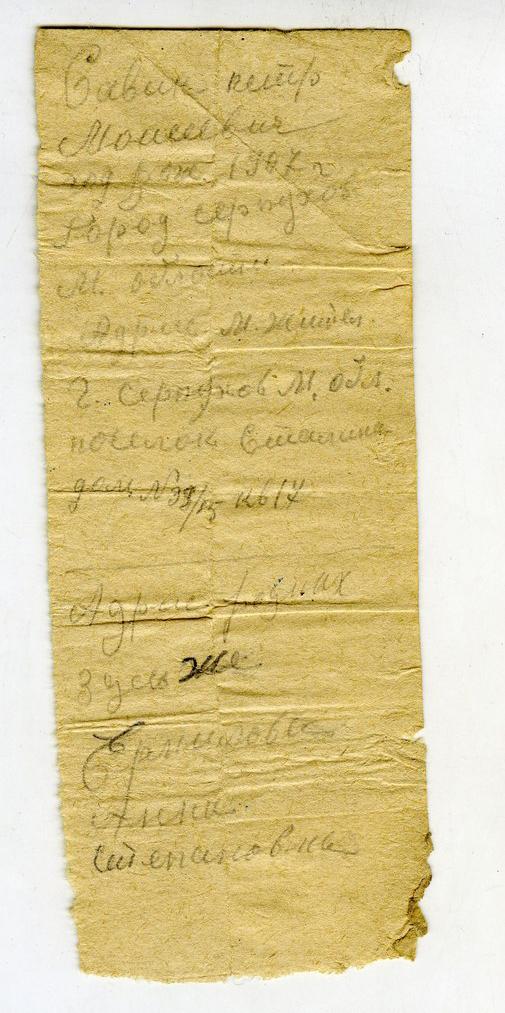 Савин петр
Моисевич
год рож. 1907 г
город серпухов
М. области
Адрис М. жител.
г. серпухов М. обл.
поселок Сталина
дом N 39/15 кв 17
Адрис родных
здесь же
Ермилова
Анна
Степановна